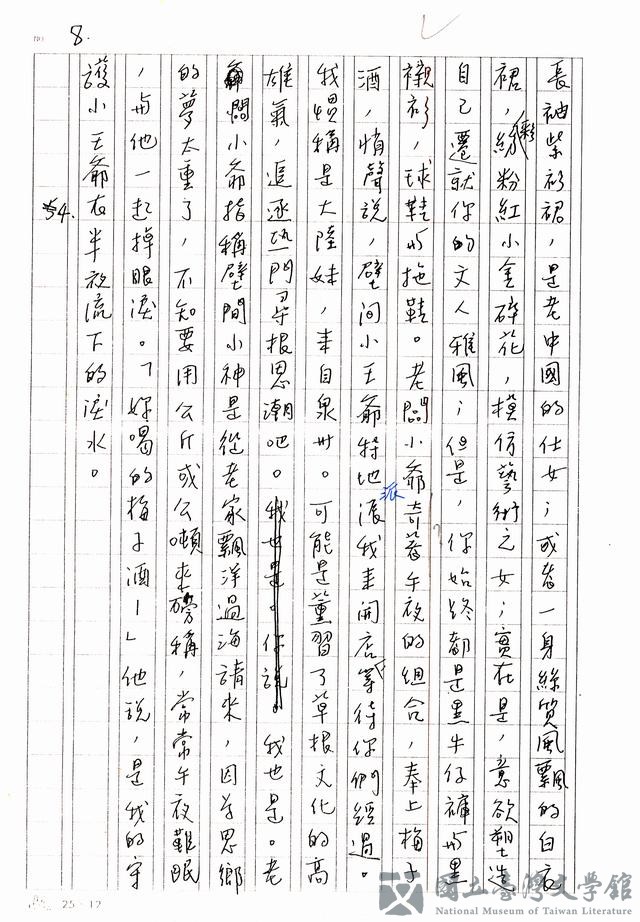 8.
長袖紫衫裙，是老中國的仕女；或者一身絲質風飄的白衣
裙，綴粉紅小金碎花，模仿藝術之女；實在是，意欲塑造
自己遷就你的文人雅風；但是，你始終都是黑牛仔褲与黑
襯衫，球鞋与拖鞋。老闆小爺奇著午夜的組合，奉上梅子
酒，悄聲說，壁间小王爺特地派我来開店等待你們經過。
我慣稱是大陸妹，来自泉州。可能是薰習了草根文化的高
雄氣，追逐熱門尋根思潮吧。我也是。你說。我也是。老
闆小爺指稱壁間小神是從老家飄洋過海請来，因為思鄉
的夢太重了，不知要用公斤或公噸来磅稱，常常午夜難眠
，与他一起掉眼淚。「好喝的梅子酒—」他說，是我的守
護小王爺在半夜流下的淚水。
54.
25×12
國立臺灣文學館
National Museum of Taiwan Literature